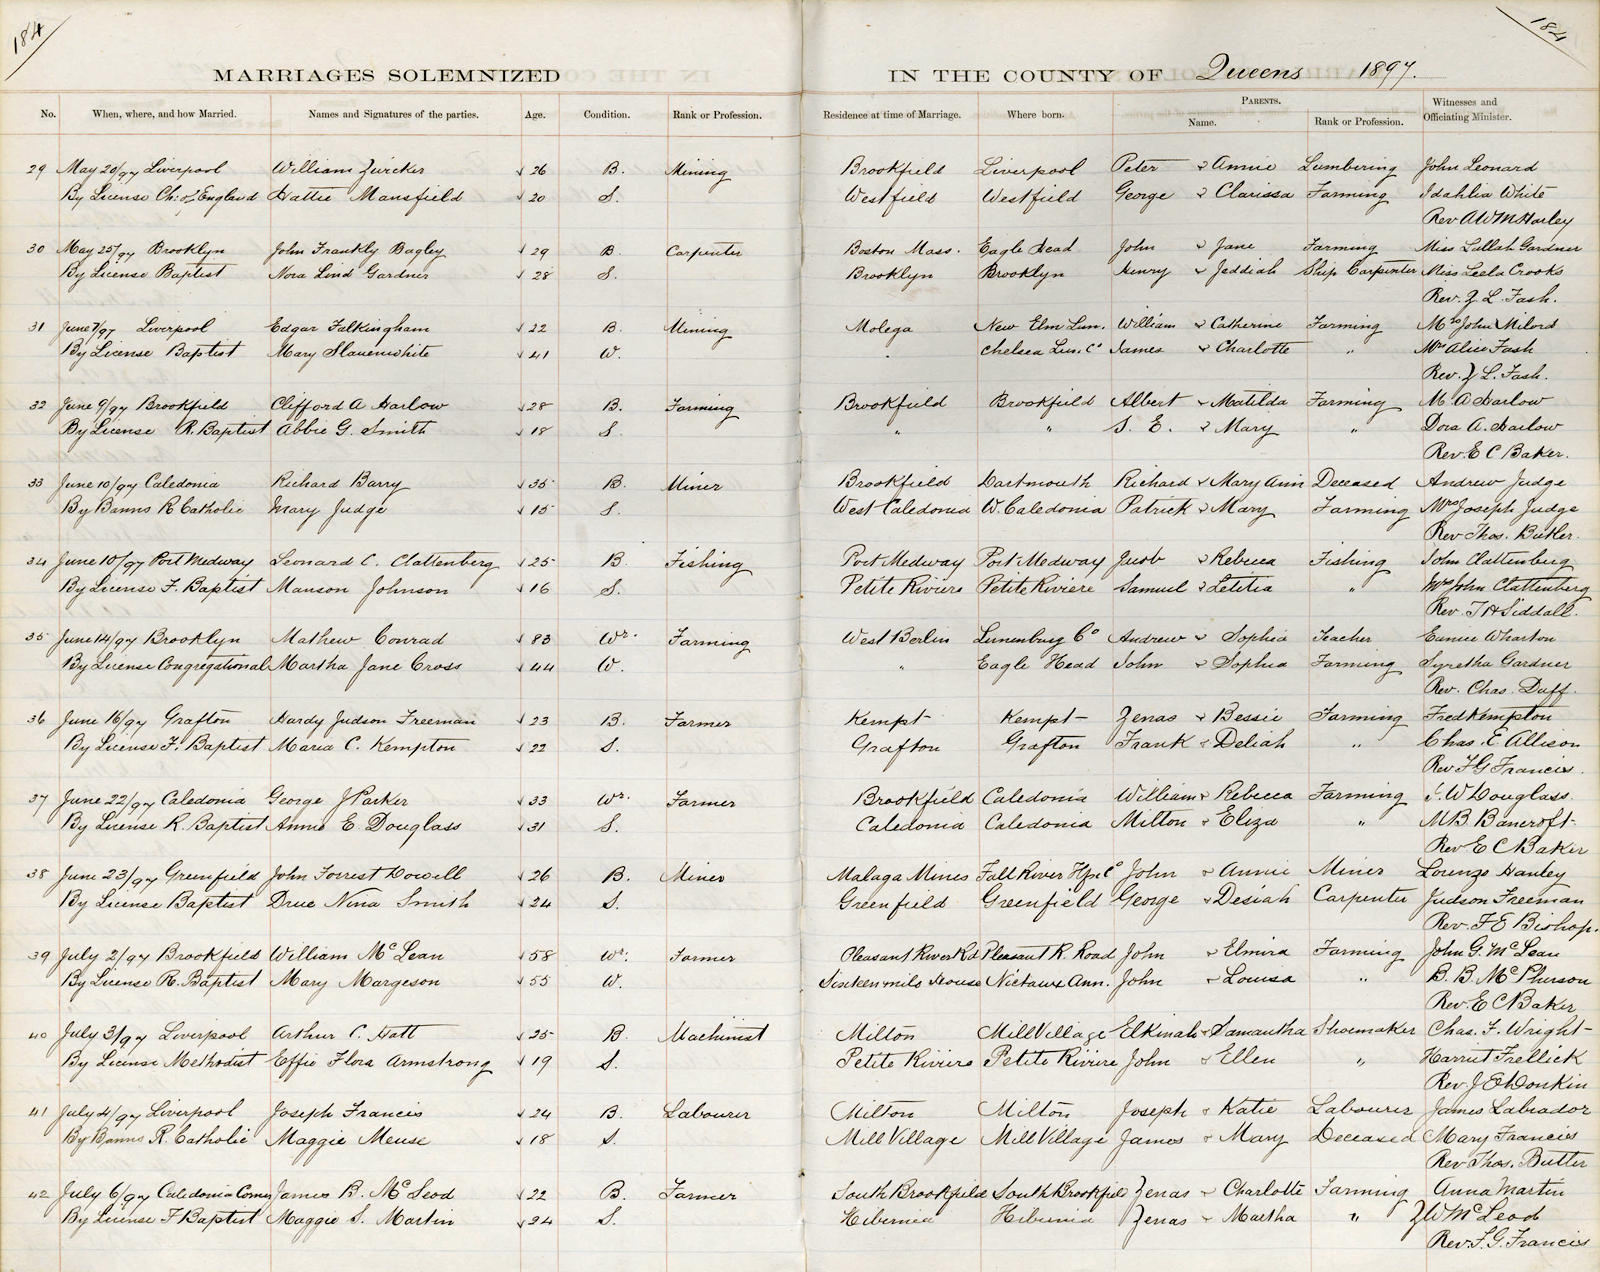 184
184
MARRIAGES SOLEMNIZED IN THE COUNTY OF Queens 1897.
No. When, where, and how Married. Names and Signatures of the parties. Age. Condition. Rank or Profession. Residence at time of Marriage. Where born. PARENTS. Name. Rank or Profession. Witnesses and Officiating Minister.
29 May 20/97 Liverpool William Zwicker √ 26 B. Mining Brookfield Liverpool Peter & Annie Lumbering John Leonard
By License Ch: of England Hattie Mansfield √ 20 S. Westfield Westfield George & Clarissa Farming Idahlia White
Rev A W M Harley
30 May 25/97 Brooklyn John Frankly Bagley √ 29 B. Carpenter Boston Mass. Eagle Head John & Jane Farming Miss Lullah Gardner
By License Baptist Nora Lind Gardner √ 28 S. Brooklyn Brooklyn Henry & Jeddiah Ship Carpenter Miss Leela Crooks
Rev. Z L. Fash.
31 June 7/97 Liverpool Edgar Falkingham √ 22 B. Mining Molega New Elm Lun. William & Catherine Farming Mrs John Milord
By License Baptist Mary Slauenwhite √ 41 W. " Chelsea Lun. Co James & Charlotte " Mrs Alice Fash
Rev. Z L. Fash.
32 June 9/97 Brookfield Clifford A Harlow √ 28 B. Farming Brookfield Brookfield Albert & Matilda Farming M. A Harlow
By License R. Baptist Abbie G. Smith √ 18 S. " " S. E. & Mary " Dora A. Harlow
Rev. E C Baker.
33 June 10/97 Caledonia Richard Barry √ 35 B. Miner Brookfield Dartmouth Richard & Mary Ann Deceased Andrew Judge
By Banns R Catholic Mary Judge √ 15 S. West Caledonia W. Caledonia Patrick & Mary Farming Mrs Joseph Judge
Rev Thos. Butler.
34 June 10/97 Port Medway Leonard C. Clattenberg √ 25 B. Fishing Port Medway Port Medway Jacob & Rebecca Fishing John Clattenburg
By License F. Baptist Manson Johnson √ 16 S. Petite Riviere Petite Riviere Samuel & Letitia " Mrs John Clattenberg
Rev. T H Siddall.
35 June 14/97 Brooklyn Mathew Conrad √ 83 Wr. Farming West Berlin Lunenburg Co Andrew & Sophia Teacher Eunice Wharton
By License Congregational Martha Jane Cross √ 44 W. " Eagle Head John & Sophia Farming Syretha Gardner
Rev. Chas. Duff.
36 June 16/97 Grafton Hardy Judson Freeman √ 23 B. Farmer Kempt Kempt Zenas & Bessie Farming Fred Kempton
By License F. Baptist Maria C. Kempton √ 22 S. Grafton Grafton Frank & Deliah " Chas. E. Allison
Rev F G Francis.
37 June 22/97 Caledonia George J Parker √ 33 Wr. Farmer Brookfield Caledonia William & Rebecca Farming W Douglass.
By License R. Baptist Annie E Douglass √ 31 S. Caledonia Caledonia Milton & Eliza " M B. Bancroft
Rev. E C Baker
38 June 23/97 Greenfield John Forrest Dowell √ 26 B. Miner Malaga Mines Fall River Hfx Co John & Annie Miner Lorenzo Hanley
By License Baptist Drue Nina Smith √ 24 S. Greenfield Greenfield George & Desiah Carpenter Judson Freeman
Rev. F E Bishop.
39 July 2/97 Brookfield William Mc Lean √ 58 Wr. Farmer Pleasant River Rd Pleasant R. Road John & Elmira Farming John G. Mc Lean
By License R. Baptist Mary Margeson √ 55 W. Sixteen mile House Nictaux Ann. John & Louisa " B. B. Mc Pherson
Rev. E C Baker
40 July 3/97 Liverpool Arthur C. Hatt √ 25 B. Machinist Milton Mill Village Elkinah & Samantha Shoemaker Chas. F. Wright
By License Methodist Effie Flora Armstrong √ 19 S. Petite Riviere Petite Riviere John & Ellen " Harriet Frellick
Rev. J E Donkin
41 July 4/97 Liverpool Joseph Francis √ 24 B. Labourer Milton Milton Joseph & Katie Labourer James Labrador
By Banns R. Catholic Maggie Meuse √ 18 S. Mill Village Mill Village James & Mary Deceased Mary Francis
Rev Thos. Butler
42 July 6/97 Caledonia Corner James B. Mc Leod √ 22 B. Farmer South Brookfield South Brookfield Zenas & Charlotte Farming Anna Martin
By License F Baptist Maggie S. Martin √ 24 S. Hibernia Hibernia Zenas & Martha " Z W Mc Leod
Rev. F. G. Francis